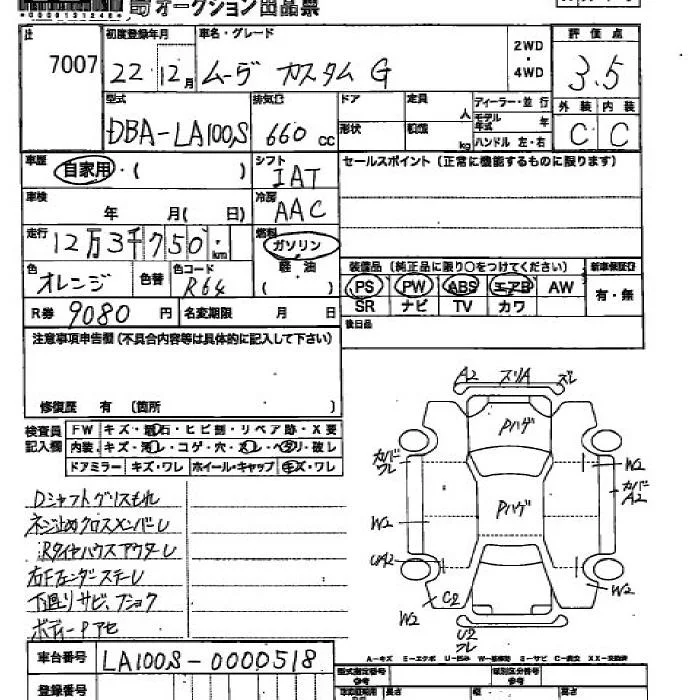 *0000131248*
オークション出品票
7007
初度登録年月
22 12月
車名・グレード
ムーヴ カスタム G
2WD
・
4WD
評価点
3.5
型式
DBA-LA100S
排気量
660 cc
ドア
定員
人
形状
積載
kg
ディーラー・並行
モデル年式 年
ハンドル 左・右
外装 内装
C C
車歴
自家用・( )
シフト
IAT
セールスポイント(正常に機能するものに限ります)
車検
年 月( 日)
冷房
AAC
走行
12万3千750 km
燃料
ガソリン
軽油
( )
色
オレンジ
色替
色コード
R64
装備品(純正品に限り○をつけてください)
新車保証書
PS PW ABS エアB AW
SR ナビ TV カワ
有・無
R券 9080 円
名変期限 月 日
後日品
注意事項申告欄(不具合内容等は具体的に記入して下さい)
修復歴 有 (箇所 )
検査員
記入欄
FW キズ・飛石・ヒビ割・リペア跡・X要
内装 キズ・汚レ・コゲ・穴・スレ・ヘタリ・破レ
ドアミラー キズ・ワレ ホイール・キャップ キズ・ワレ
Dシャフトグリスもれ
ネジ止めクロスメンバーレ
下廻りサビ、
A2 スリA ズレ
Pハゲ
カバーワレ
W2
カバーA2
Pハゲ
W2
W2
C2
W2
U2
ワレ
車台番号 LA100S-0000518
登録番号
A-キズ E-エクボ U-凹み W-補修跡 S-サビ C-腐食 XX-交換済
型式指定番号
類別区分番号
長さ
幅
高さ